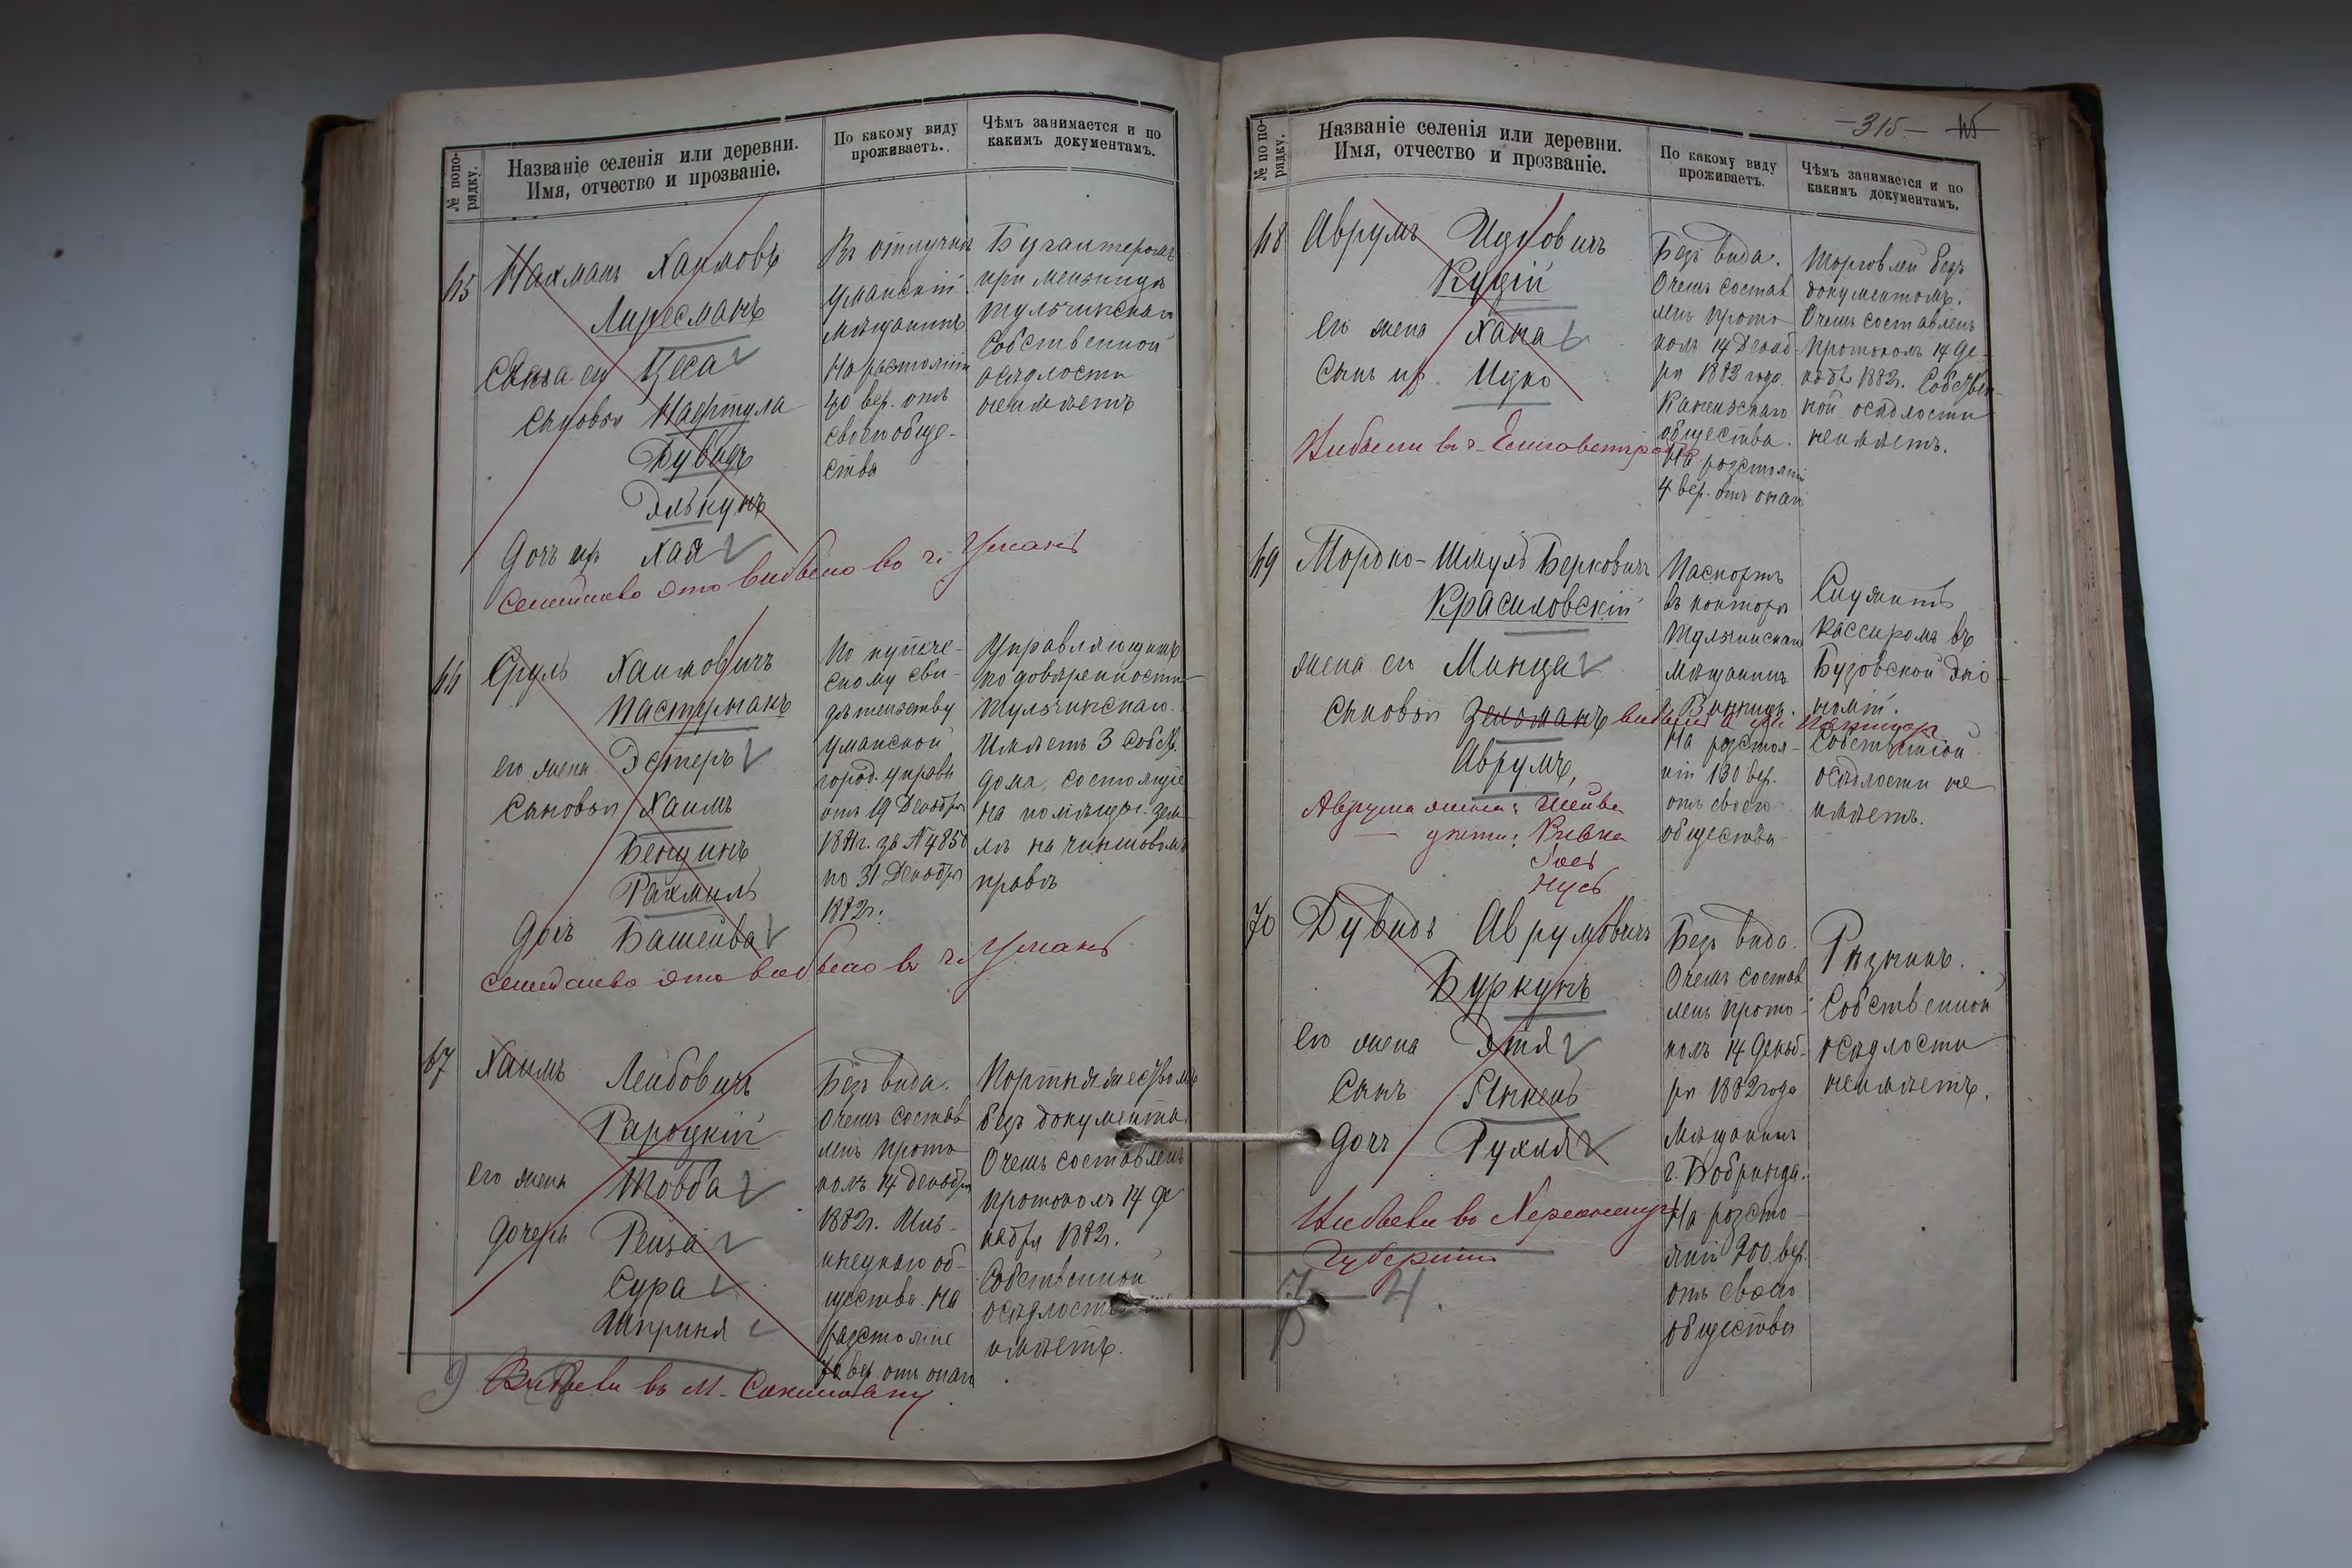 № попо-
рядку.
Названіе селенія или деревни.
Имя, отчество и прозваніе.
По какому виду
проживаетъ.
Чѣмъ занимается и по
какимъ документамъ.
65
Нахманъ Хаимовъ
его Цеса
Сыновья Нафтула
Дувидъ
Элькунъ
Дочь их Хая
Семейство это выбыло въ г. Умань
Умаискій
мѣщанинъ
На разстояніи
40 вер. отъ
своего обще-
ства
Бугалтеромъ
при
Тульчинскаго
Собственной
осѣдлости
неимѣетъ
66
Сруль Хаимовичъ
Пастурмакъ
его жена Эстеръ
Сыновья Хаимъ
Бенцинъ
Рахмиль
Дочь Башейва
Семейство это выбыло въ г. Умань
По купече-
скому сви-
дѣтельству
Уманской
город. управы
отъ 19 Декабря
1881 г. за № 4850
по 31 Декабря
1882 г.
Управляющимъ
по довѣренности
Тульчинскаго.
Имѣетъ 3 собств.
дома, состоящіе
на помѣщич. зем-
лѣ на чиншовомъ
правѣ
67
Хаимъ Лейбовичъ
Гароцкій
его жена Товба
дочери Рейза
Сура
Шприня
Выбыли въ м.
Безъ вида.
О чемъ состав
ленъ прото
колъ 14 декабря
1882 г.
об-
щества. На
разстояніе
вер. отъ онаго
Портняжествомъ
безъ документа.
О чемъ составленъ
протоколъ 14 де
кабря 1882 г.
Собственной
осѣдлости не
имѣетъ.
-315-
№ по по-
рядку.
Названіе селенія или деревни.
Имя, отчество и прозваніе.
По какому виду
проживаетъ.
Чѣмъ занимается и по
какимъ документамъ.
68
Аврумъ Ицковичъ
Куцій
его жена Хана
Сынъ их Ицко
Выбыли въ г. Елисаветградъ
Безъ вида.
О чемъ состав
ленъ прото
колъ 14 Декаб-
ря 1882 года.
общества.
На разстояніи
4 вер. отъ онаго
Торговлей безъ
документомъ.
О чемъ составленъ
протоколъ 14 де-
кабр 1882 г. Собствен-
ной осѣдлости
неимѣетъ.
69
Мордко-Шмуль Берковичъ
Красиловскій
жена его Минца
Сыновья Зельманъ
Аврумъ
Аврума жена: Шейва
дети: Ривка
Нусь
Паспортъ
въ конторѣ
Тульчинскаго
мѣщанинъ
г. Винницы.
На разстоя-
ніи 130 вер.
отъ своего
общества
Служитъ
Кассиромъ въ
Бузовской эко-
номіи.
Собственной
осѣдлости не
имѣетъ.
70
Дувидъ Аврумовичъ
Буркунъ
его жена Этя
Сынъ Янкель
Дочь Рухля
Выбыли въ Херсонскую
Губернію
Безъ вида.
О чемъ состав
ленъ прото-
колъ 14 Декаб-
ря 1882 года
Мѣщанинъ
г. Бобринца.
На разсто-
яніи 200 вер.
отъ своего
общества
Рѣзникъ.
Собственной
осѣдлости
неимѣетъ.